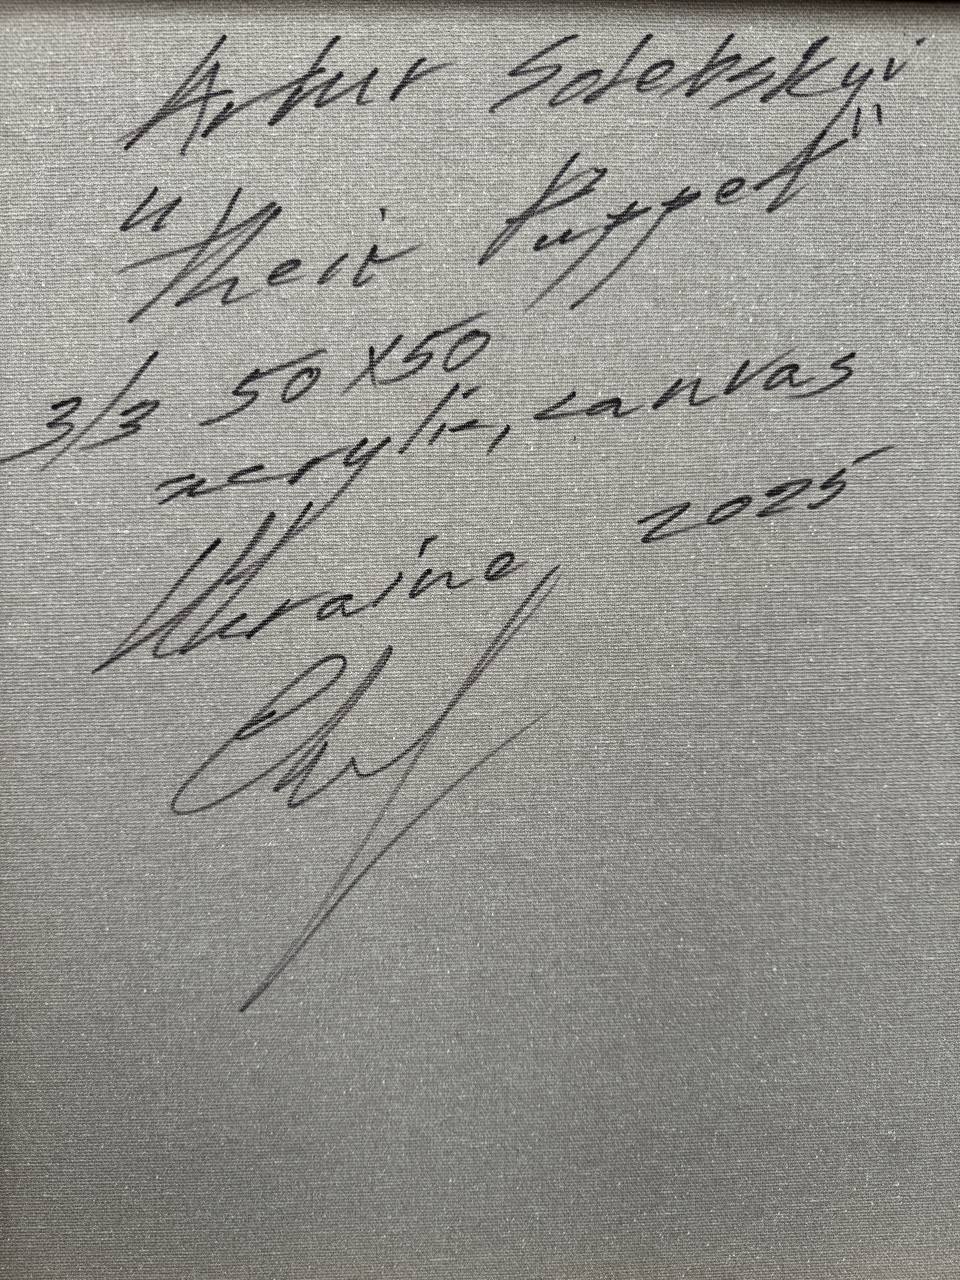 Artur Soletskyi
"Their Puppet"
3/3 50x50
acrylic, canvas
Ukraine, 2025